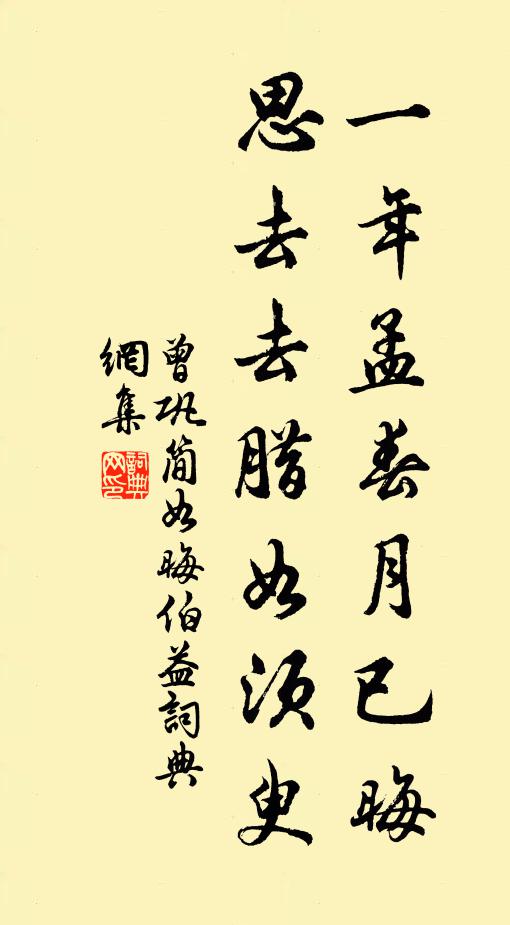 一年孟春月已晦
思去去腊如须臾
曾巩简如晦伯益詞典
網集
詞典網印